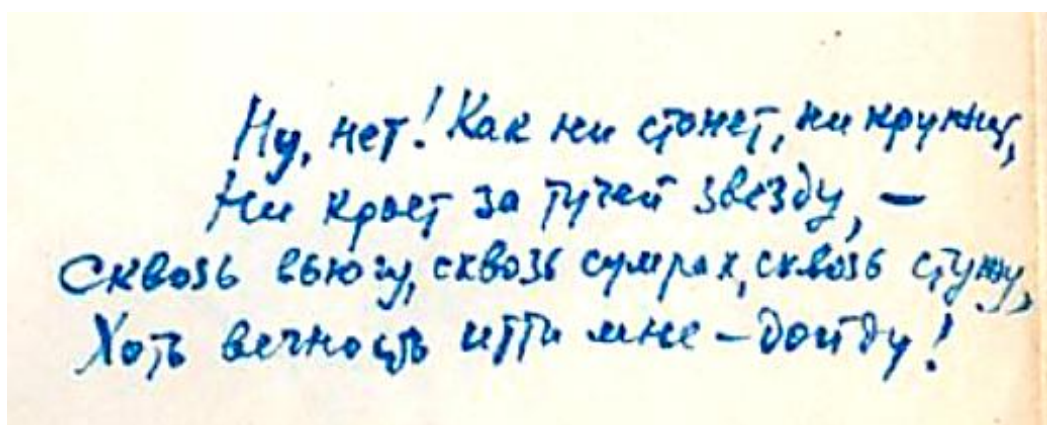 Ну, нет! Как ни стонет, ни кружит,
Ни кроет за тучей звезду, —
Сквозь вьюгу, сквозь сумрак, сквозь стужу,
Хоть вечность итти мне — дойду!